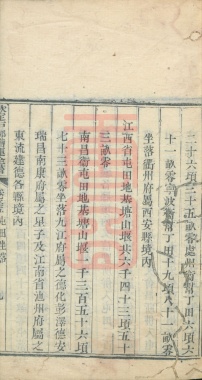 二十六項三十五畝零處州衛屯田六項六
十一畝零寧波衛屯丁田十九項八十一畝零
坐落衢州府屬西安縣境內
江西省屯田地基塘山堰共六千四十三項五十
三畝零
南昌衛屯田地基塘山堰一千三百五十六項
七十三畝零坐落九江府屬之德化彭澤德安
瑞昌南康府屬之星子及江南省池州府屬之
東流建德各縣境內